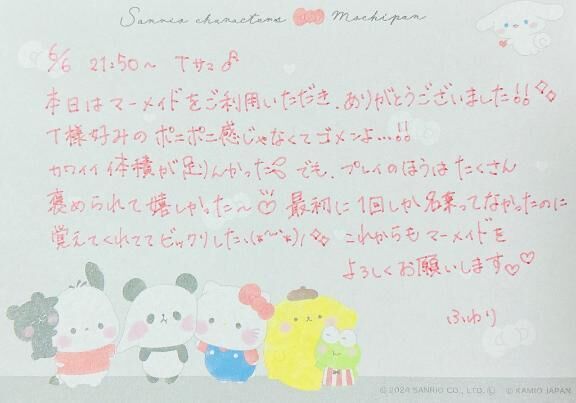 Sanrio characters Mochipan
6/6 21:50〜 Tサマ♪
本日はマーメイドをご利用いただき、ありがとうございました!!
T様好みのポニポニ感じゃなくてゴメンよ…!!
カワイイ体積が足りんかった でも、プレイのほうはたくさん
褒められて嬉しかった〜♡ 最初に1回しか名乗ってなかったのに
覚えてくれててビックリした、 これからもマーメイドを
よろしくお願いします♡♡
ふわり
© 2024 SANRIO CO., LTD. Ⓛ © KAMIO JAPAN